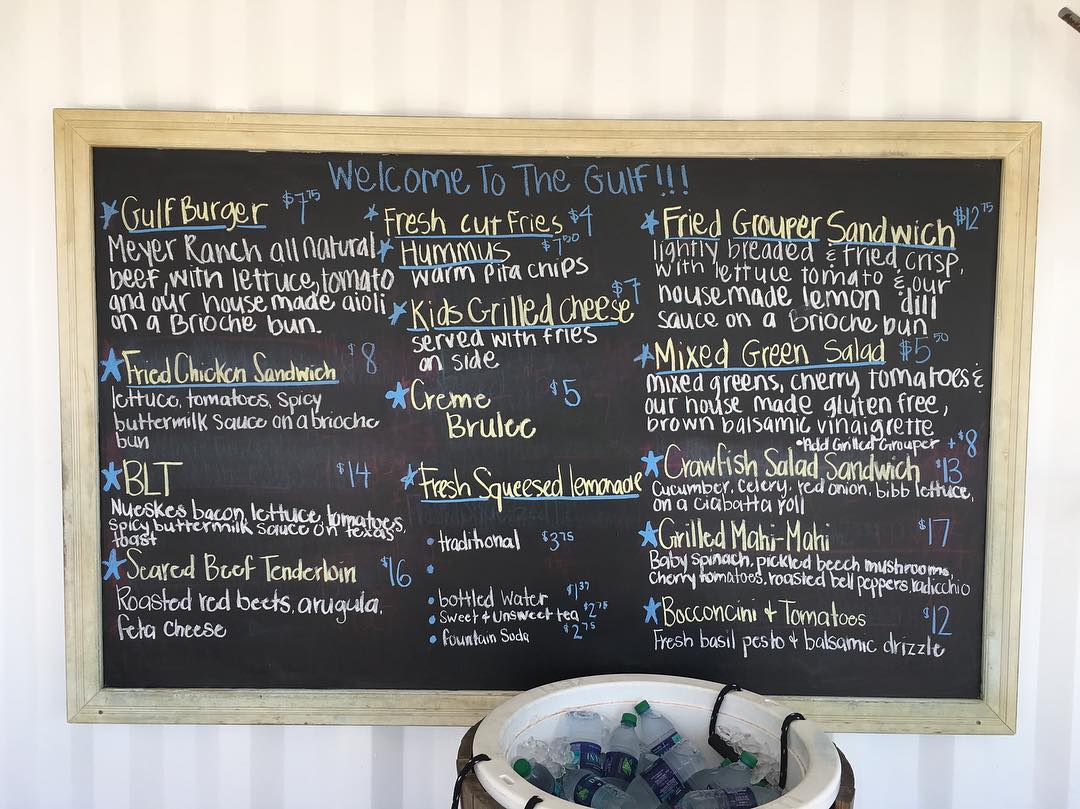 Welcome To The Gulf!!!
Gulf Burger $7.75
Meyer Ranch all natural
beef, with lettuce, tomato
and our house made aioli
on a Brioche bun.
Fried Chicken Sandwich $8
lettuce, tomatoes, spicy
buttermilk sauce on a brioche
bun
BLT $14
Nueskes bacon, lettuce, tomatoes,
spicy buttermilk sauce on texas
toast
Seared Beef Tenderloin $16
Roasted red beets, arugula,
feta cheese
Fresh cut Fries $4
Hummus $7.50
warm pita chips
Kids Grilled cheese $7
served with fries
on side
Creme $5
Brulee
Fresh Squeesed lemonade
traditional $3.75
bottled water $1.37
sweet & unsweet tea $2.75
fountain soda $2.75
Fried Grouper Sandwich $12.75
lightly breaded & fried crisp,
with lettuce tomato & our
housemade lemon dill
sauce on a Brioche bun
Mixed Green Salad $5.50
mixed greens, cherry tomatoes &
our house made gluten free,
brown balsamic vinaigrette
*Add Grilled Grouper +$8
Crawfish Salad Sandwich $13
Cucumber, celery, red onion, bibb lettuce,
on a ciabatta roll
Grilled Mahi-Mahi $17
Baby spinach, pickled beech mushrooms,
cherry tomatoes, roasted bell peppers, radicchio
Bocconcini & Tomatoes $12
Fresh basil pesto & balsamic drizzle